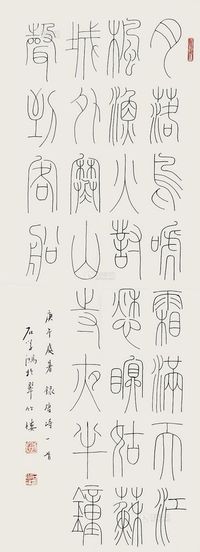 月落烏啼霜滿天江
楓漁火對愁眠姑蘇
城外寒山寺夜半鐘
聲到客船
庚午處暑錄唐詩一首
石學鴻於翠竹樓